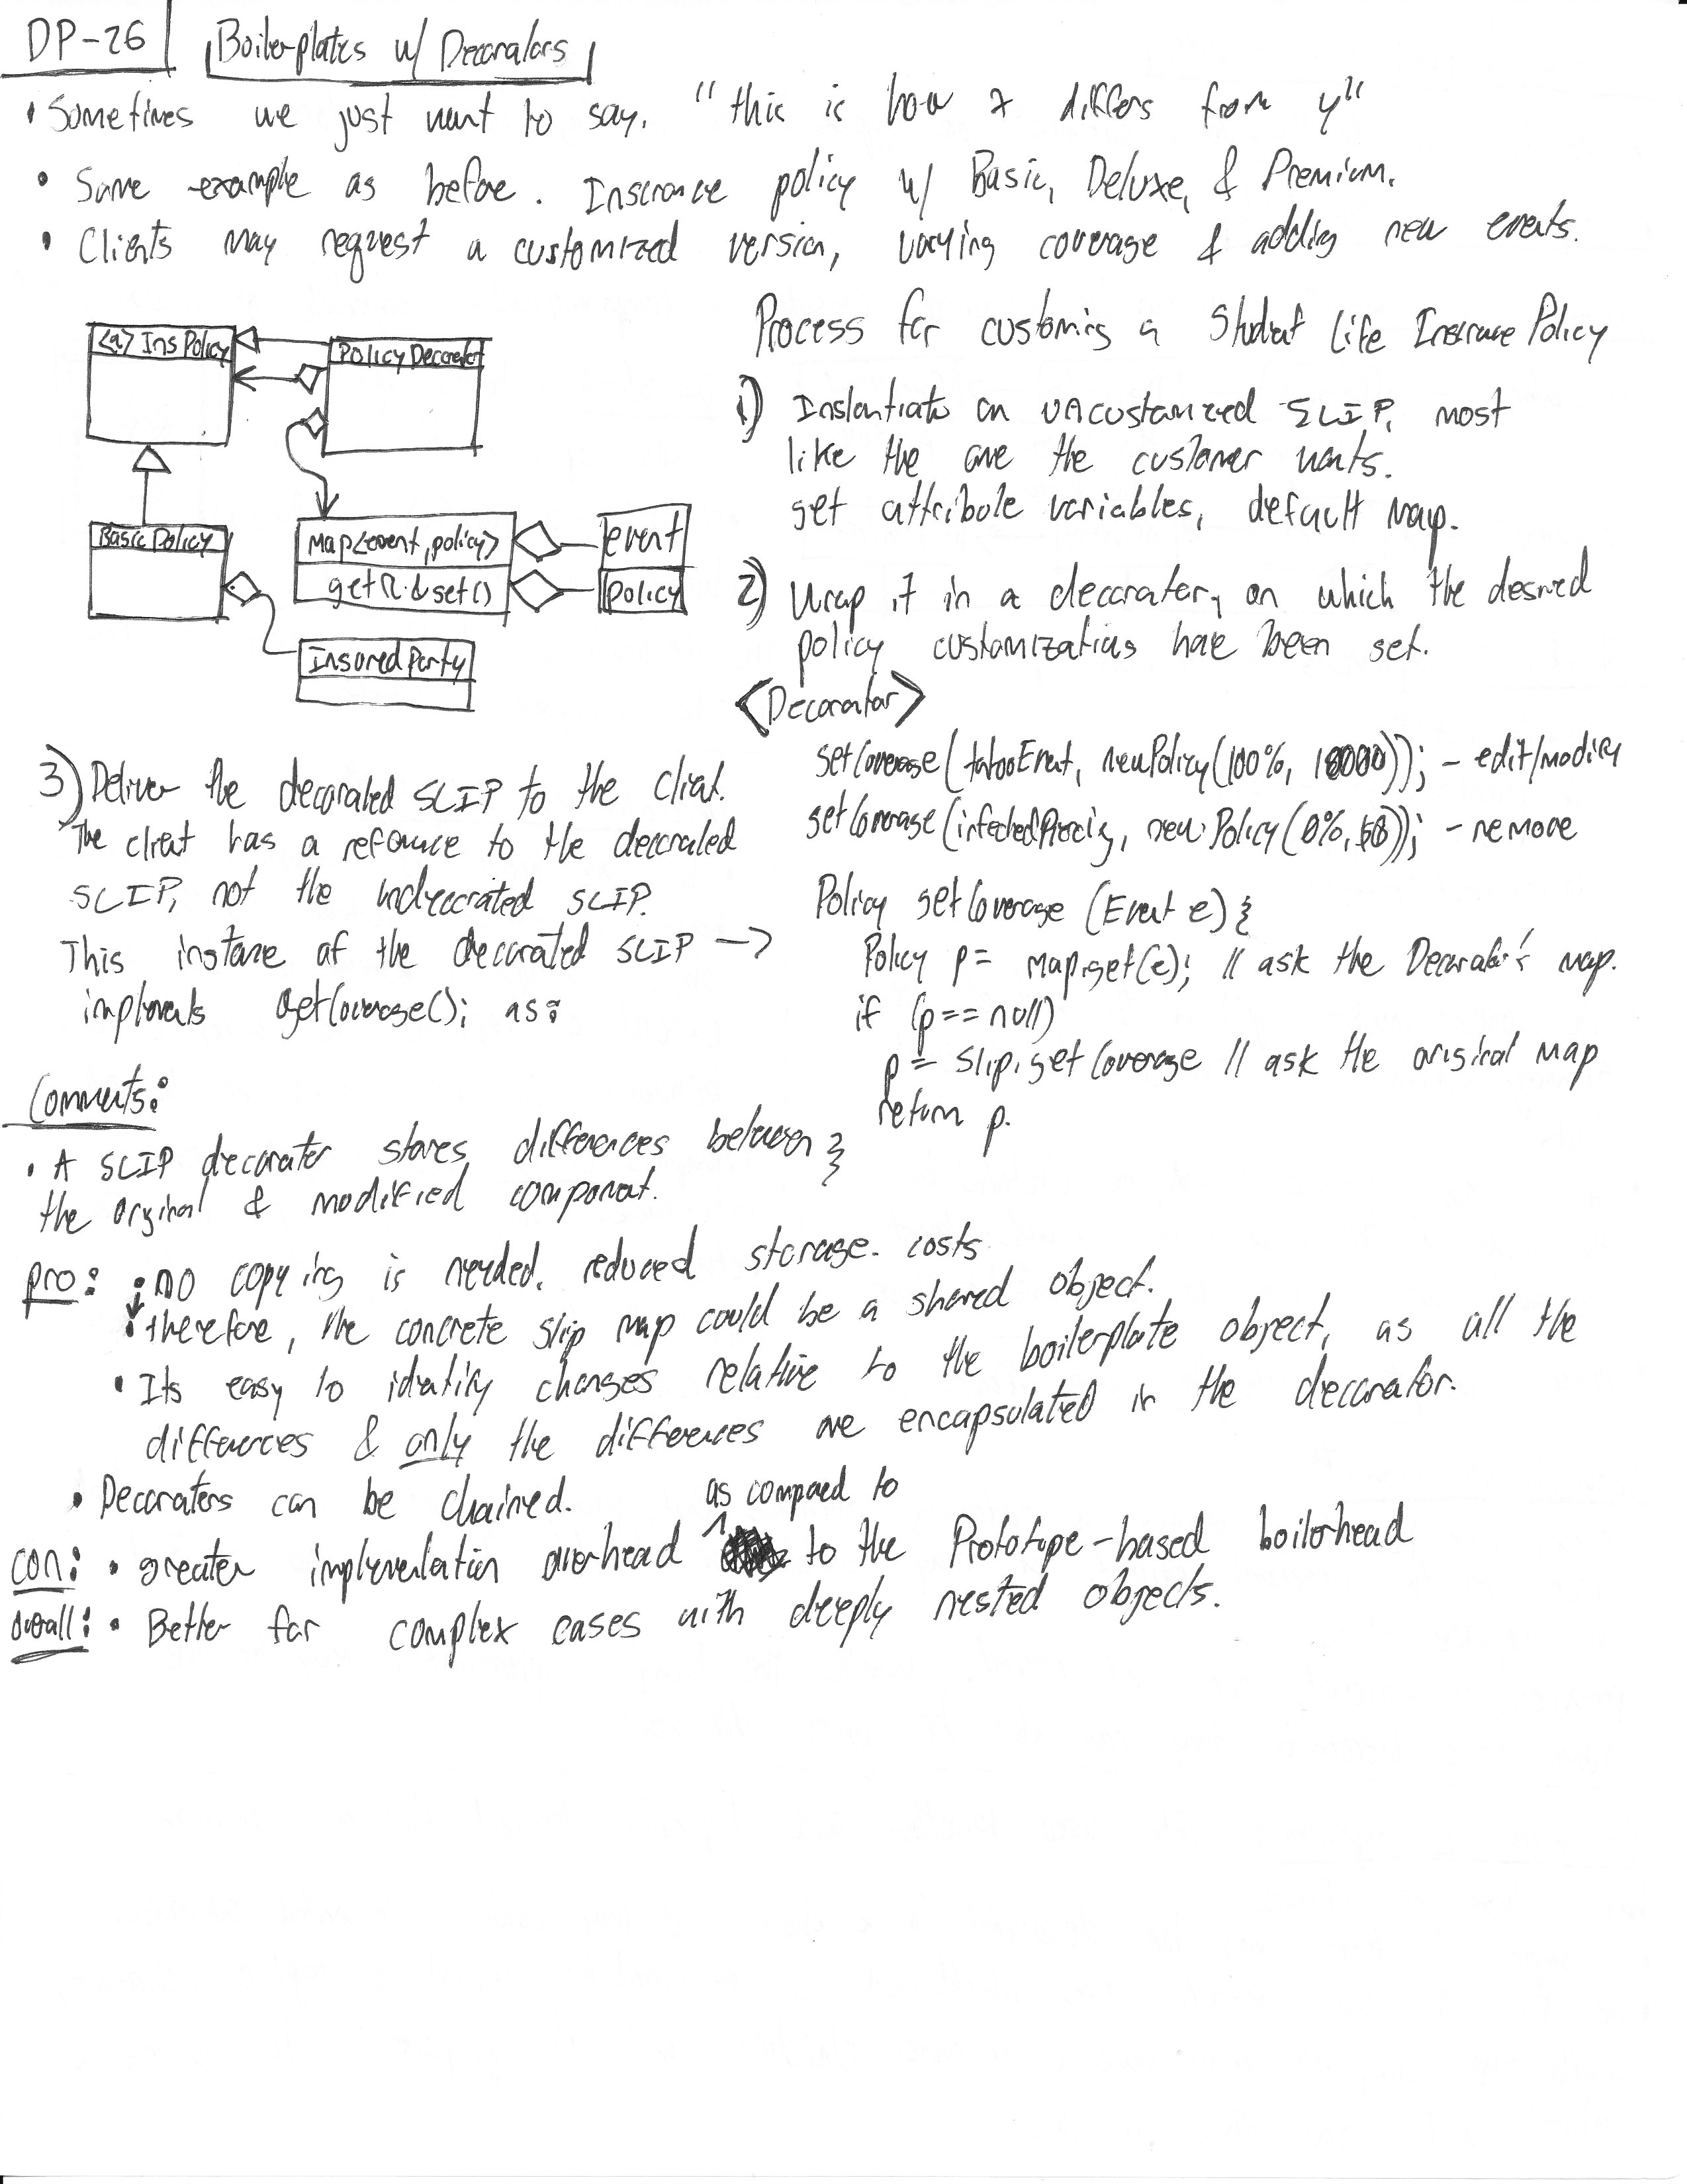 DP-26
Boilerplates w/ Decorators
• Sometimes we just want to say, "this is how x differs from y"
• Same example as before. Insurance policy w/ Basic, Deluxe, & Premium.
• Clients may request a customized version, varying coverage & adding new events.
<a> Ins Policy
Policy Decorator
Basic Policy
Map<event, policy>
get() & set()
event
policy
Insured Party
Process for customing a Student Life Insurance Policy
1) Instantiate an uncustomized SLIP, most
like the one the customer wants.
set attribute variables, default map.
2) Wrap it in a decorater, on which the desired
policy customizations have been set.
<Decorator>
setCoverage(tatooEvent, newPolicy(100%, 10000)); - edit/modify
setCoverage(infectedPiercing, new Policy(0%, $0)); - remove
3) Deliver the decorated SLIP to the client.
The client has a reference to the decorated
SLIP, not the undecorated SLIP.
This instance of the decorated SLIP →
implements getCoverage(); as:
Policy getCoverage (Event e) {
Policy p = map.get(e); // ask the Decorator's map.
if (p == null)
p = slip.getCoverage // ask the original map
return p.
}
Comments:
• A SLIP decorater stores differences between
the orginal & modified component.
pro: • no copying is needed. reduced storage costs
• therefore, the concrete slip map could be a shared object.
• Its easy to identify changes relative to the boilerplate object, as all the
differences & only the differences are encapsulated in the decorator.
• Decoraters can be chained.
as compared to
con: • greater implementation overhead to the Prototype-based boilerhead
overall: • Better for complex cases with deeply nested objects.